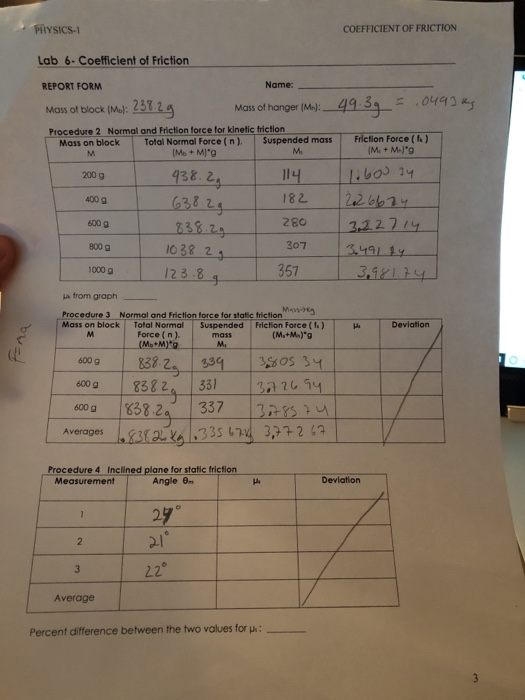 PHYSICS-1 COEFFICIENT OF FRICTION
Lab 6- Coefficient of Friction
REPORT FORM Name:
Mass of block (M₀): 238.2g Mass of hanger (Mₕ): 49.3g = .0493 kg
Procedure 2 Normal and Friction force for kinetic friction
Mass on block Total Normal Force ( n ). Suspended mass Friction Force ( fₖ )
M (M₀ + M)*g Mₛ (Mₛ + Mₕ)*g
200 g 438.2g 114 1.600 34
400 g 638.2g 182 2.26674
600 g 838.2g 280 3.22714
800 g 1038 2g 307
1000 g 123.8 g 357 3.98174
μₖ from graph
Procedure 3 Normal and Friction force for static friction
Mass on block Total Normal Suspended Friction Force ( fₛ ) μₛ Deviation
M Force ( n ). mass (Mₛ+Mₕ)*g
(M₀+M)*g Mₛ
600 g 838.2g 339 3.805 34
600 g 838 2g 331 3.72694
600 g 838.2g 337 3.78574
Averages .8382 kg .33567 kg 3.77267
F=ma
Procedure 4 Inclined plane for static friction
Measurement Angle θₘ μₛ Deviation
1
2 21°
3 22°
Average
Percent difference between the two values for μₛ:
3